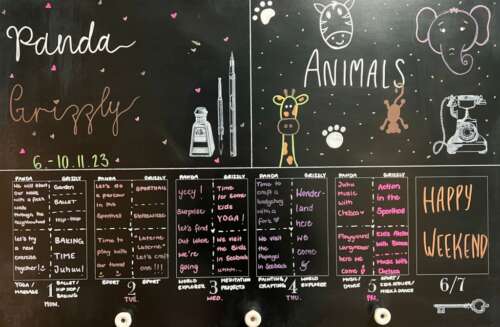 Panda
Grizzly
6.-10.11.23
ANIMALS
PANDA
GRIZZLY
PANDA
GRIZZLY
PANDA
GRIZZLY
PANDA
GRIZZLY
PANDA
GRIZZLY
We will start
our week
with a fresh
walk
through the
neighbourhood
Let's try
a new
exercise
together!
Garden
BALLET
Hip-Hop
BAKING
TIME
Juhuu!
Let's do
Time to
play with
our
SPORTHALL
Laterne
Laterne
Let's craft
one!!!
yeey!
Surprise
let's find
out where
we're
going
Time for
some
kids
YOGA!
We visit
the Birds
in Seebach
Time to
craft a
hedgehog
with a
fork
We visit
the
in Seebach
Wonder-
land
here
we
come
John's
music
with
Chelsea
Playground
here we
come
Action
in the
Sporthall
Music with
Chelsea
HAPPY
WEEKEND
YOGA/
MASSAGE
1
MON.
BALLET/
HIP HOP/
BAKING
SPORT
2
TUE.
SPORT
WORLD
EXPLORER
3
WED.
MEDITATION
PROJECTS
PAINTING/
CRAFTING
4
THU.
WORLD
EXPLORER
MUSIC/
DANCE
5
FRI.
SPORT/
KIDS AKTION/
MUSIC & DANCE
6/7